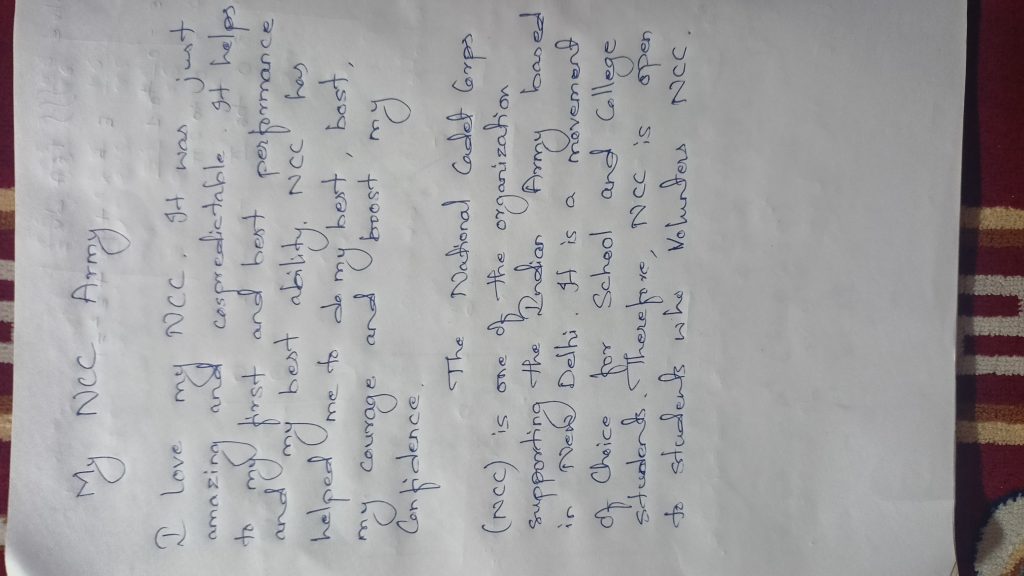 My NCC Army
I love my NCC. It was just
amazing and cospredictable. It helps
to my first and best performance
and my best ability. NCC has
helped me to do my best, bost,
my courage and broost my
Confidence.
The National Cadet Corps
(NCC) is one of the organization
supporting the Indian Army based
in New Delhi. It is a movement
of Choice for School and College
Students. Therefore, NCC is open
to students who Volunters NCC.